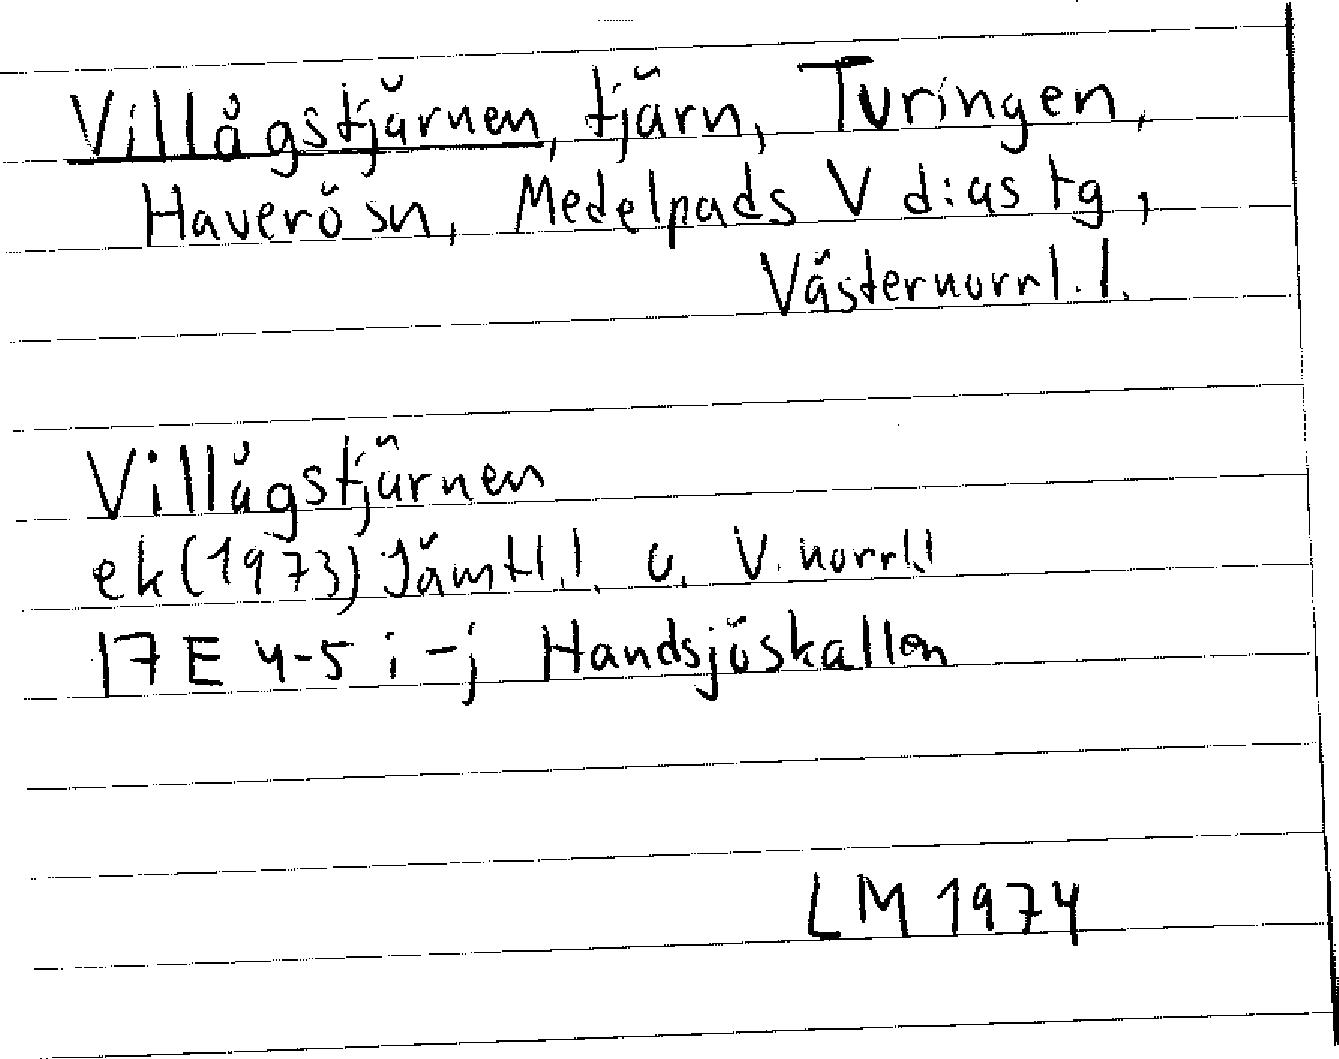 Villågstjärnen, tjärn, Turingen,
Haverö sn, Medelpads V d:as tg,
Västernorrl. l.
Villågstjärnen
ek (1973) Jämtl. l. o. V. norrl. l
17 E 4-5 i -j Handsjöskallen
LM 1974